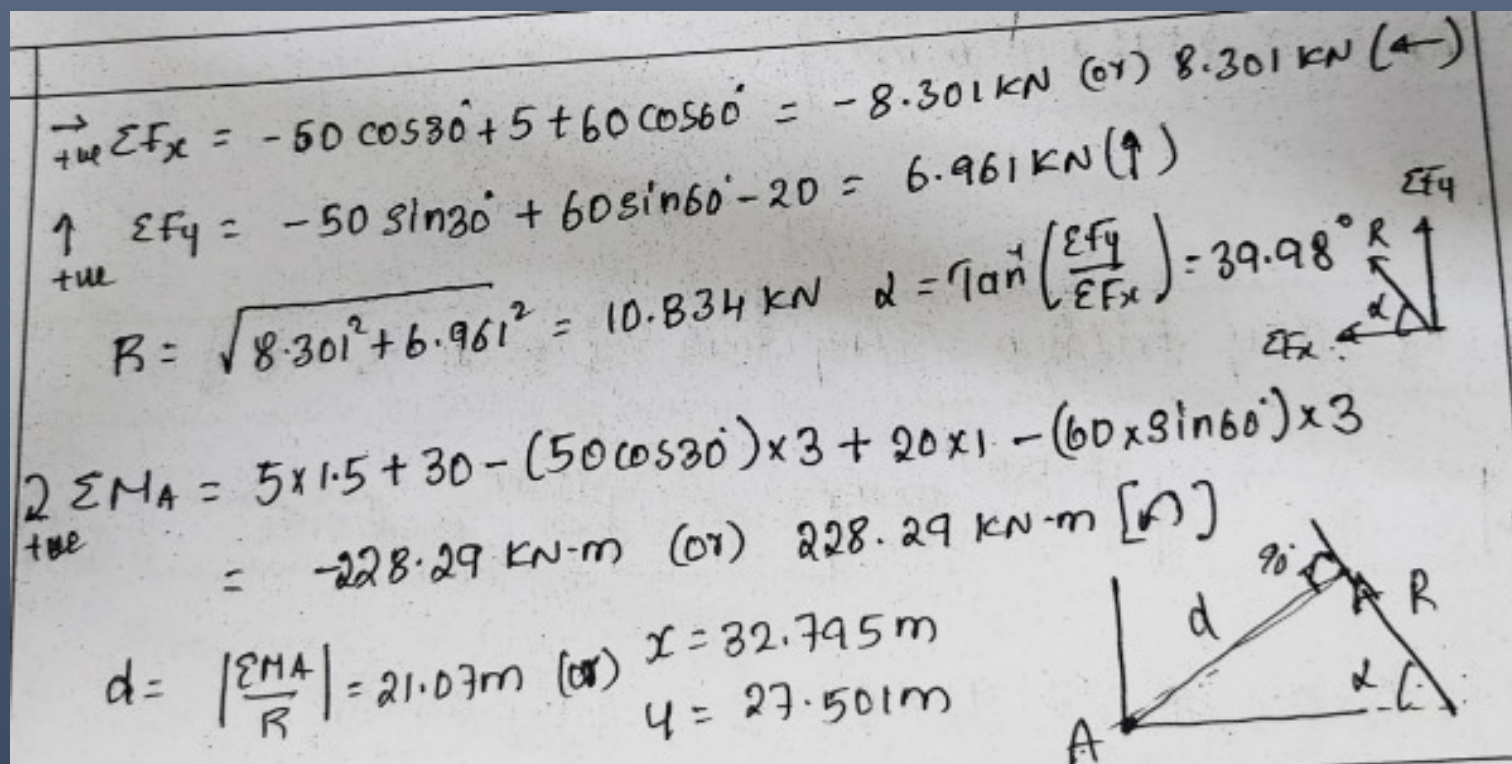 → +ve ΣFx = -50 cos30° + 5 + 60 cos60° = -8.301 KN (or) 8.301 KN (←)
↑ +ve ΣFy = -50 sin30° + 60 sin60° - 20 = 6.961 KN (↑)
ΣFy
R = √8.301² + 6.961² = 10.834 KN α = Tan⁻¹ (ΣFy/ΣFx) = 39.98° R
α
ΣFx
+ve ΣMA = 5x1.5 + 30 - (50cos30°)x3 + 20x1 - (60xsin60°)x3
= -228.29 KN-m (or) 228.29 KN-m [↶]
90° R
d = |ΣMA/R| = 21.07m (or) x = 32.795m d
y = 27.501m α
A